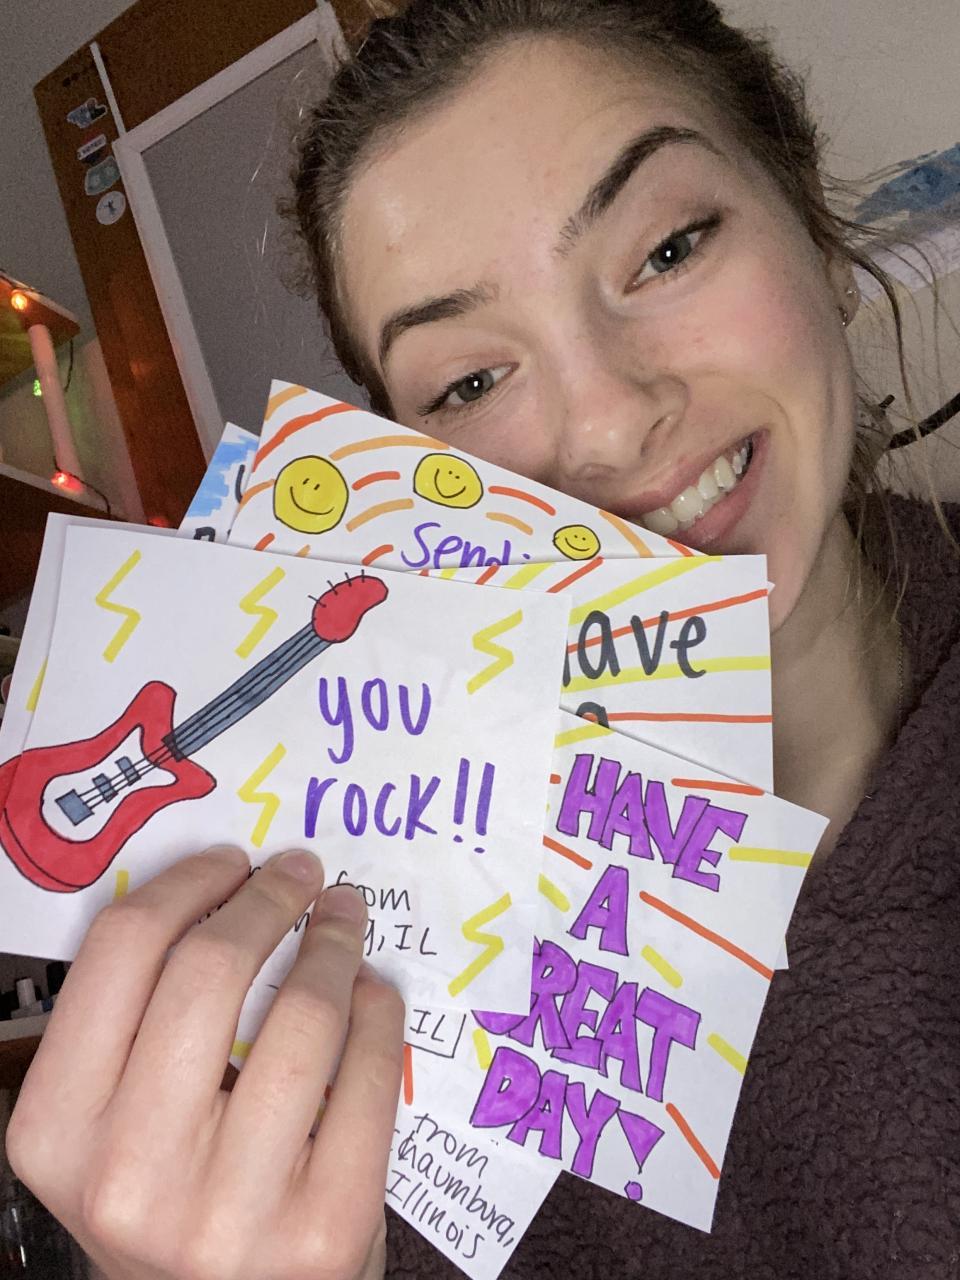 Sendi
ave
a
you
rock!!
from
g, IL
HAVE
A
GREAT
DAY!
IL
from
Schaumburg,
Illinois